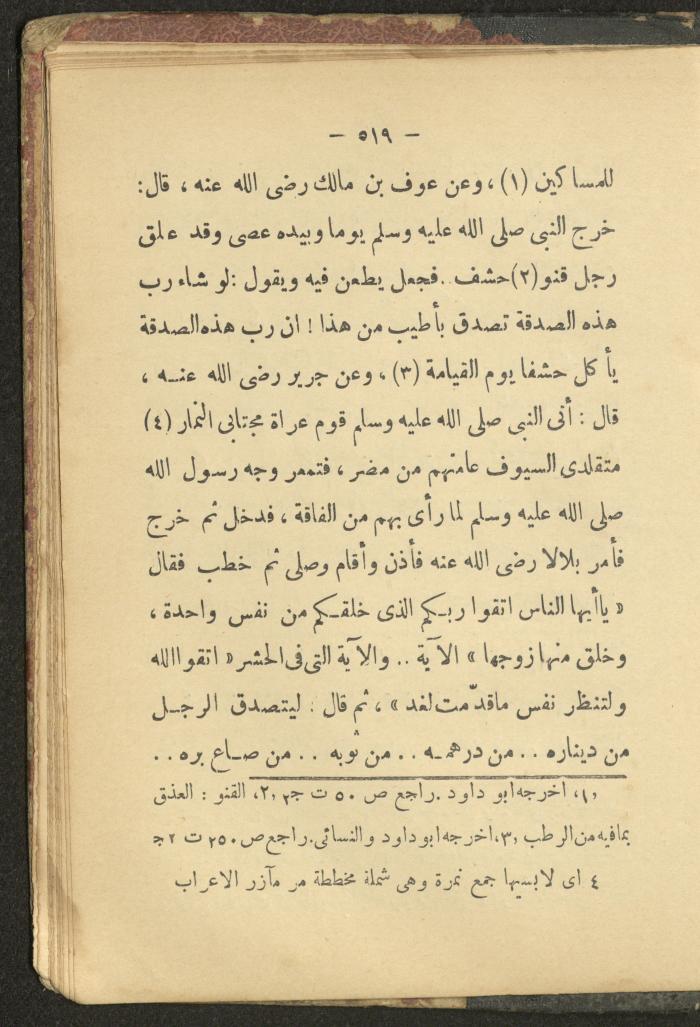 — ٥١٩ —
للمساكين (١) ، وعن عوف بن مالك رضى الله عنه ، قال :
خرج النبى صلى الله عليه وسلم يوما وبيده عصى وقد علق
رجل قنو (٢) حشف .. فجعل يطعن فيه ويقول : لو شاء رب
هذه الصدقة تصدق بأطيب من هذا ! ان رب هذه الصدقة
يأكل حشفا يوم القيامة (٣) ، وعن جرير رضى الله عنه ،
قال : أتى النبى صلى الله عليه وسلم قوم عراة مجتابى النمار (٤)
متقلدى السيوف عامتهم من مضر ، فتمعر وجه رسول الله
صلى الله عليه وسلم لما رأى بهم من الفاقة ، فدخل ثم خرج
فأمر بلالا رضى الله عنه فأذن وأقام وصلى ثم خطب فقال
« ياأيها الناس اتقوا ربكم الذى خلقكم من نفس واحدة ،
وخلق منها زوجها » الآية .. والآية التى فى الحشر « اتقوا الله
ولتنظر نفس ماقدّمت لغد » ، ثم قال : ليتصدق الرجل
من ديناره .. من درهمه .. من ثوبه .. من صاع بره ..
«١» اخرجه ابو داود . راجع ص ٥٠ ت ج٢ «٢» القنو : العذق
بمافيه من الرطب «٣» اخرجه ابو داود والنسائى . راجع ص ٢٥٠ ت ٢ ج
٤ اى لابسيها جمع نمرة وهى شملة مخططة مر مآزر الاعراب